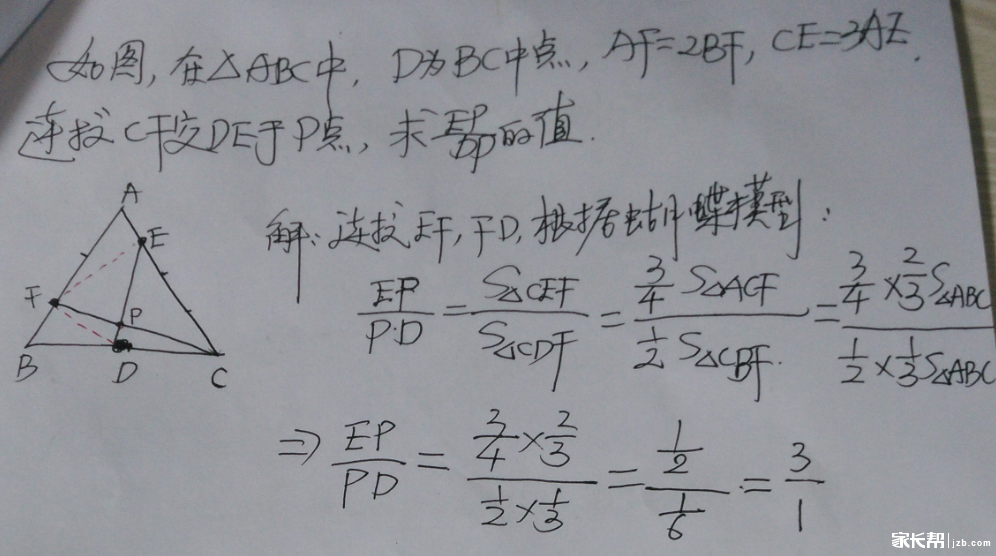 如图,在△ABC中,D为BC中点,AF=2BF,CE=3AE.
连接CF交DE于P点,求EP/DP的值.
解:连接EF,FD,根据蝴蝶模型:
EP/PD=S△CEF/S△CDF=3/4 S△ACF/1/2 S△CBF=3/4×2/3 S△ABC/1/2×1/3 S△ABC
⇒EP/PD=3/4×2/3/1/2×1/3=1/2/1/6=3/1
A
E
F
P
B
D
C
家长帮 jzb.com